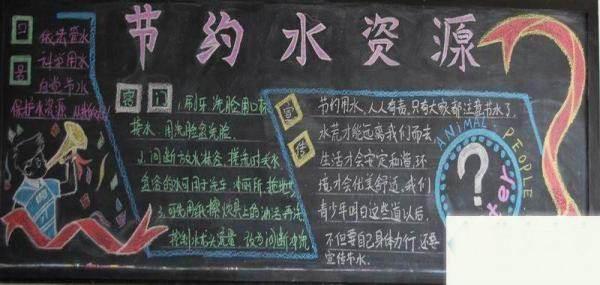 节约水资源
口号
依法管水
科学用水
自觉节水
保护水资源
窍门
1.刷牙、洗脸用口杯
接水,用洗脸盆洗脸
2.间断放水淋浴,搓洗时关水
盆浴的水可用于洗车、冲厕所、拖地
3.可先用纸擦
控制水龙头流量 改为间断冲洗
宣传
节约用水,人人有责,只有大家都注意节水了,
水荒才能远离我们而去
生活才会安定和谐,环
境才会优美舒适,我们
青少年明白这些道以后,
不但要自己身体力行 还要
宣传节水.
ANIMAL
PEOPLE
?